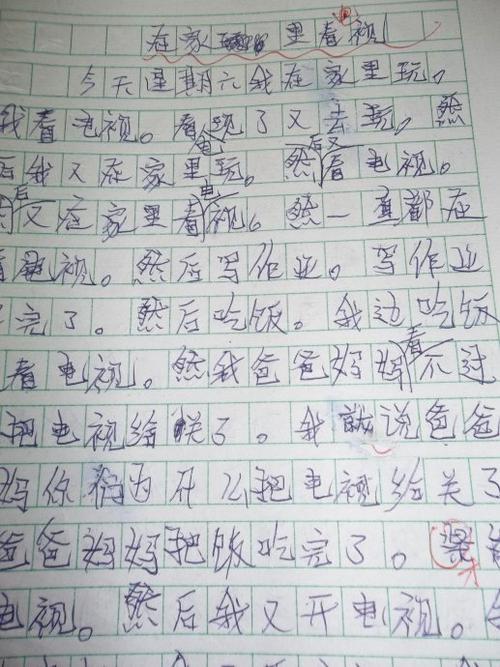 在家里看视
今天星期六我在家里玩。
我看电视。看电视了又去玩。然
后我又在家里玩。然后又看电视。
后又在家里看电视。然一直都在
看电视。然后写作业。写作业
完了。然后吃饭。我边吃饭
看电视。然我爸爸妈妈看不过
把电视给关了。我就说爸爸
妈你们为什么把电视给关了
爸爸妈妈把饭吃完了。
电视。然后我又开电视。